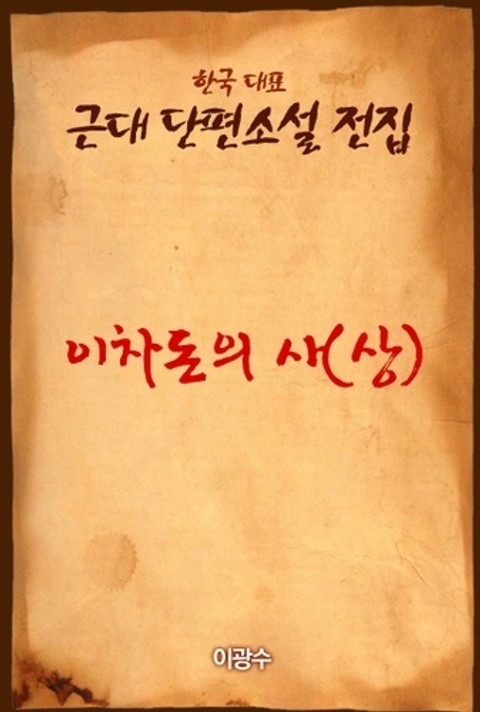 한국 대표
근대 단편소설 전집
이차돈의 사(상)
이광수